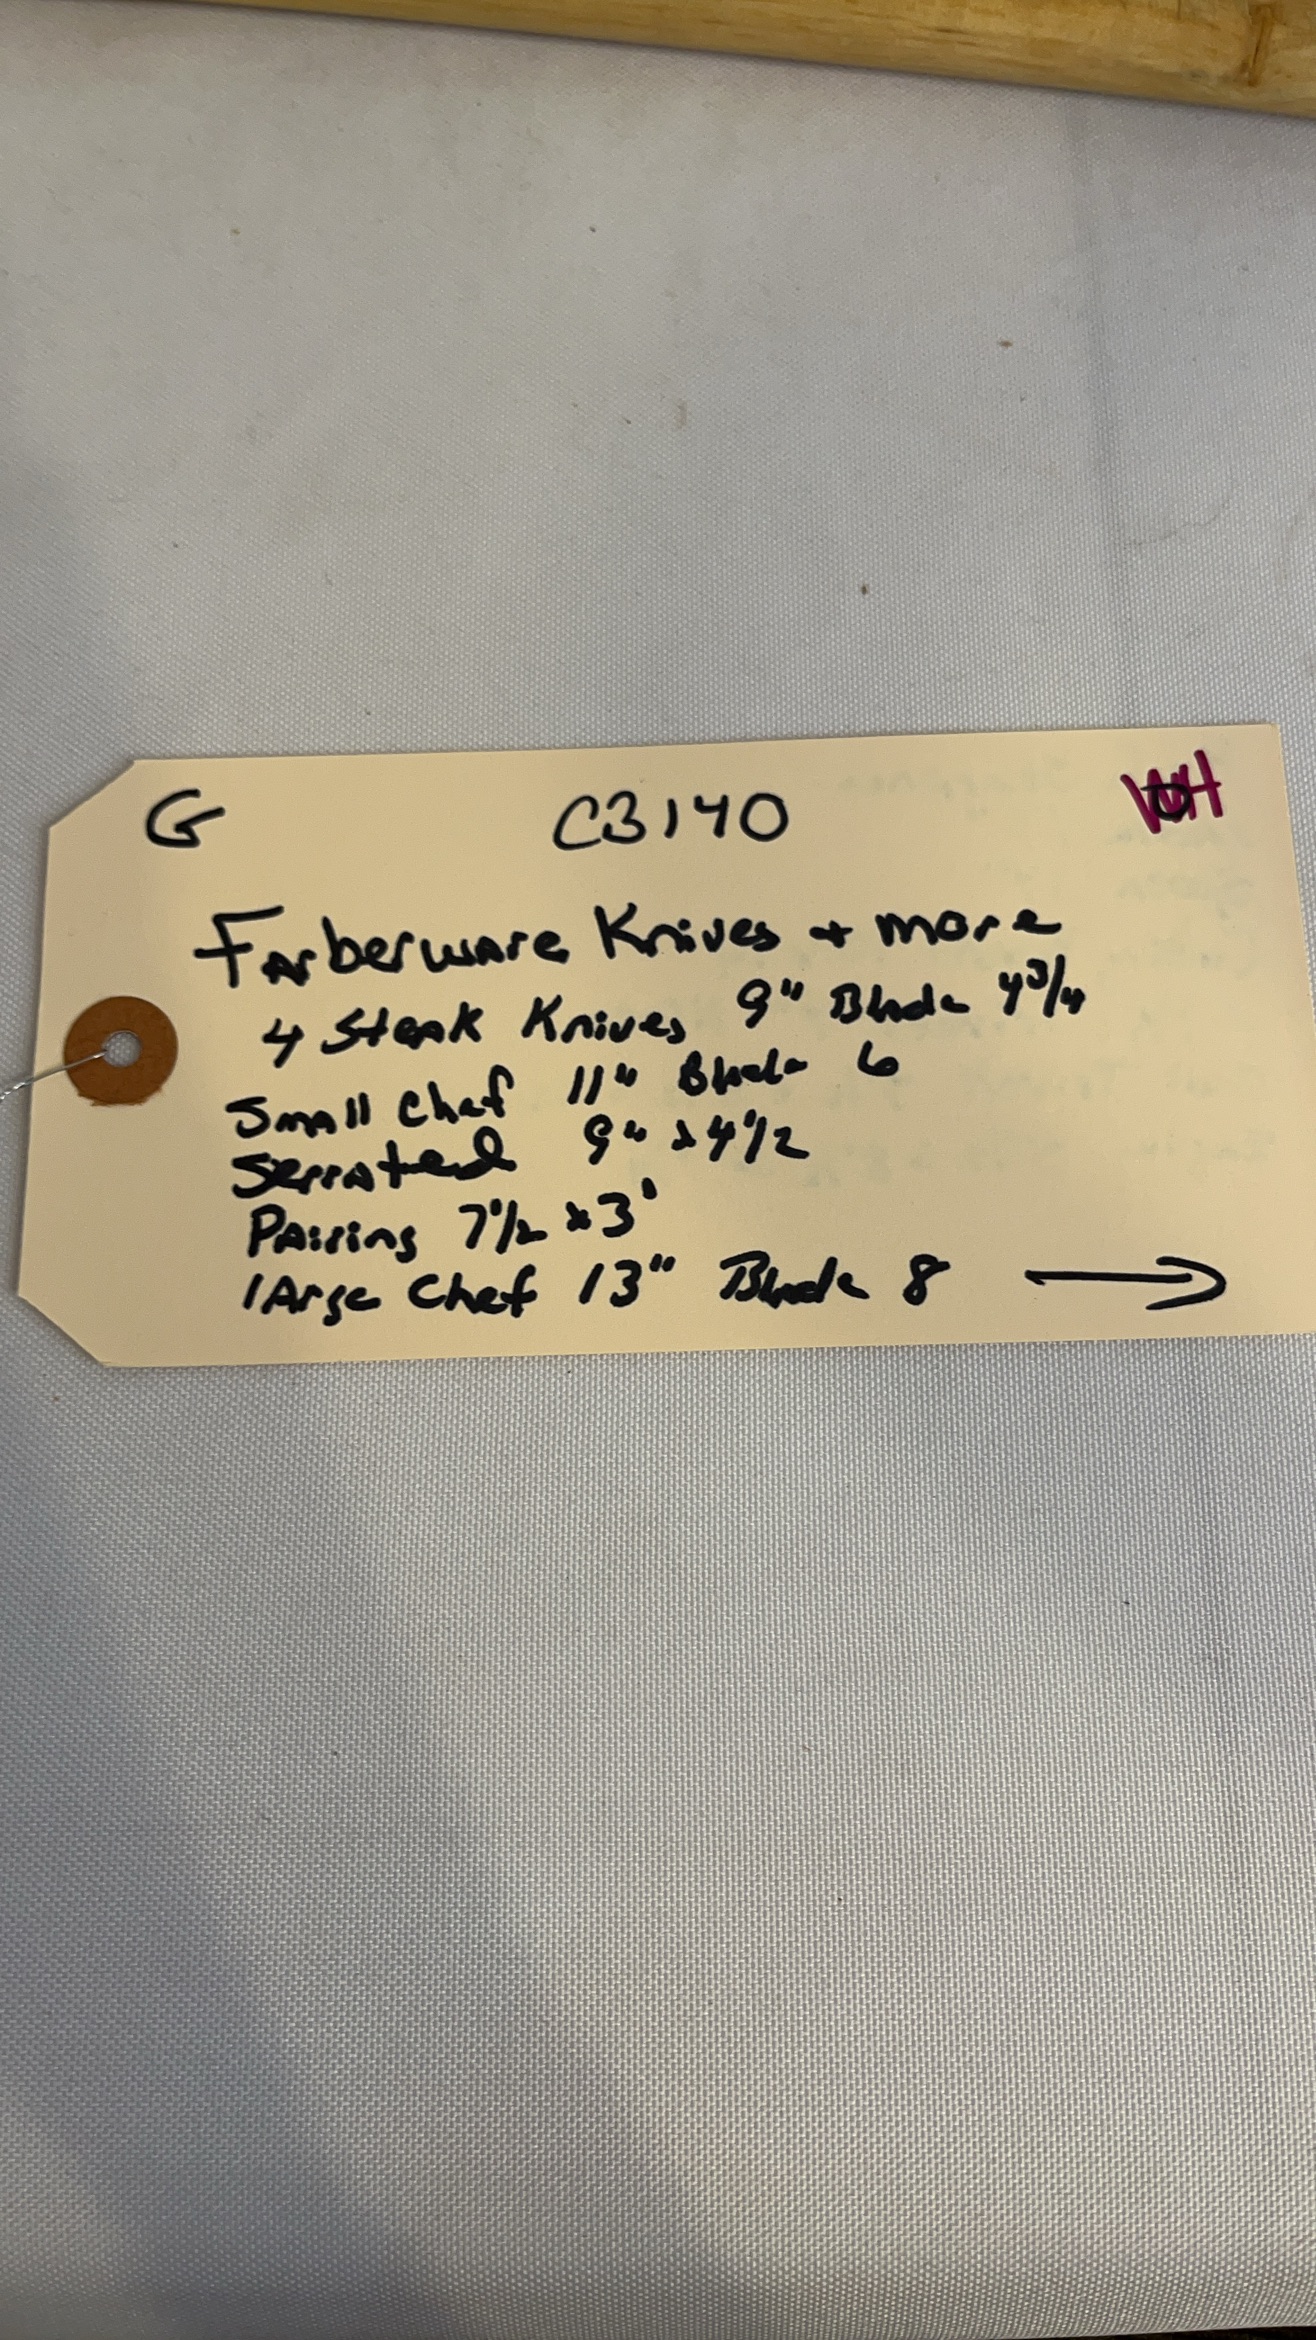 G C3140 WH
Farberware Knives + more
4 Steak Knives 9" Blade 4 3/4
Small Chef 11" Blade 6
Serrated 9" x 4 1/2
Pairing 7 1/2 x 3"
large Chef 13" Blade 8 →